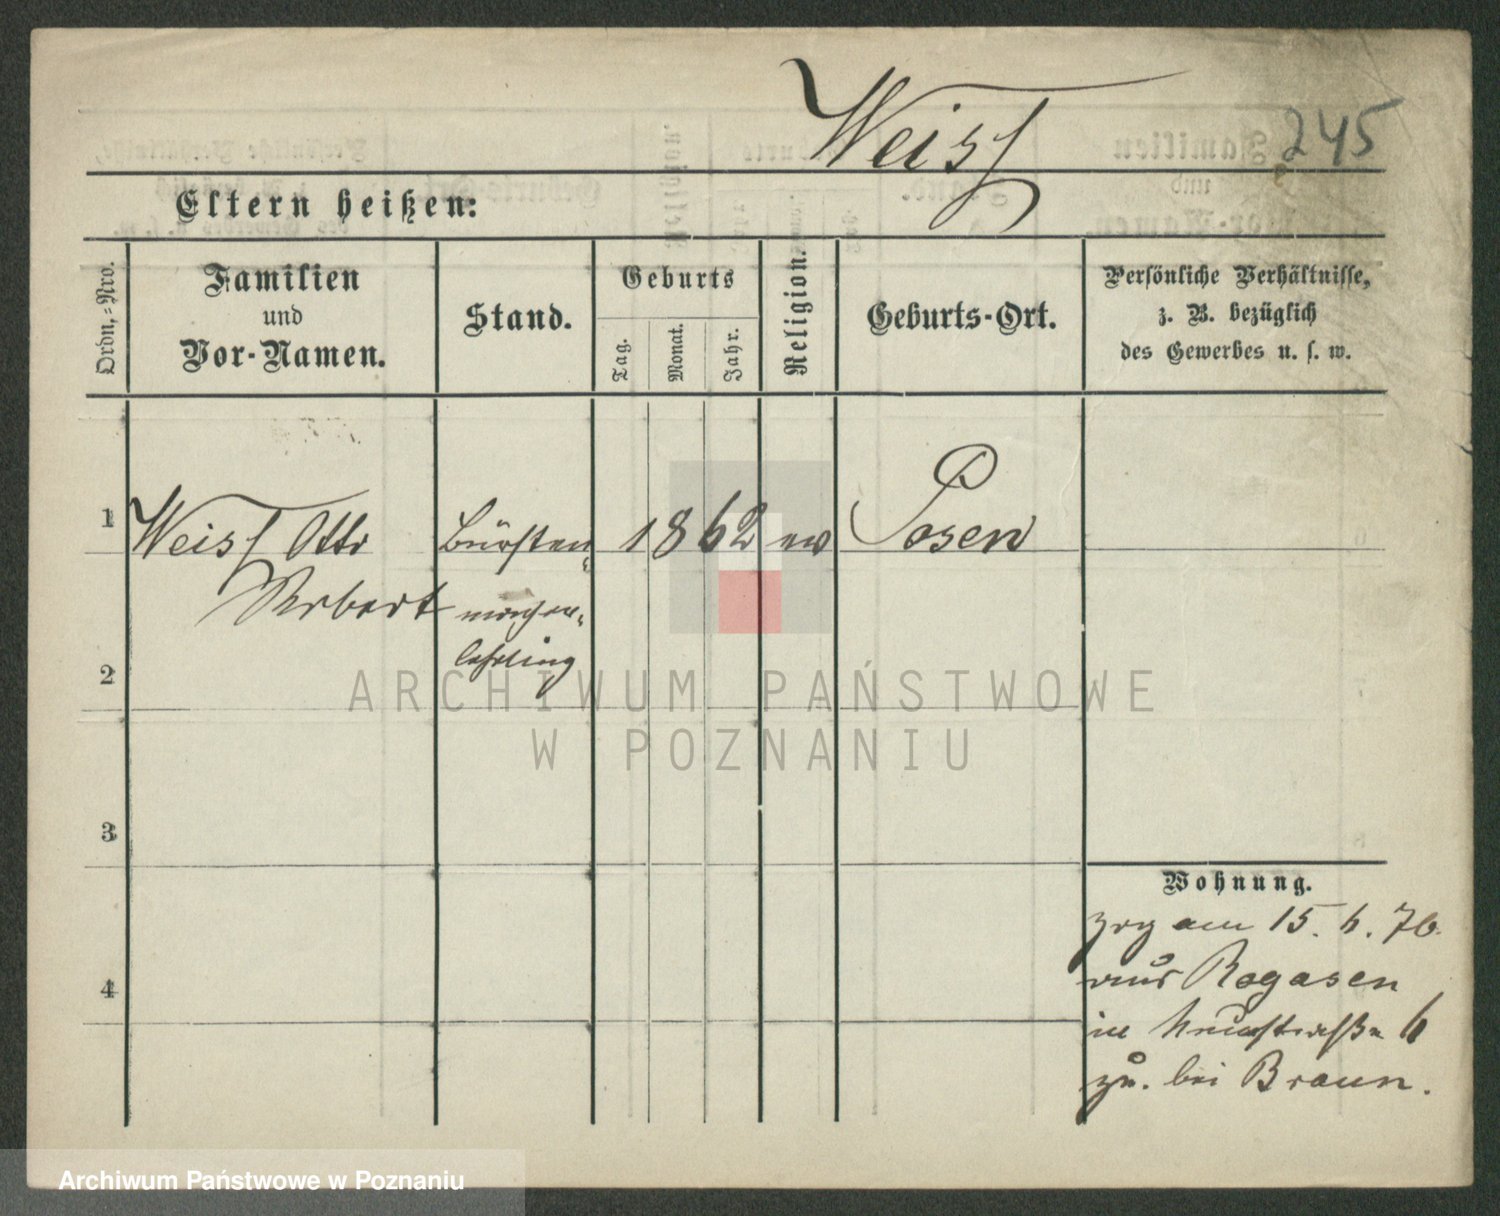 Weiss
245
Eltern heißen:
Ordn.-Nro.
Familien
und
Vor-Namen.
Stand.
Geburts
Tag.
Monat.
Jahr.
Religion.
Geburts-Ort.
Persönliche Verhältnisse,
z. B. bezüglich
des Gewerbes u. s. w.
1 Weiss Otto Bürsten 1862 ev Posen
Robert macher-
lehrling
2
3
4
Wohnung.
zog am 15. 6. 76.
aus Rogasen
in 6
zu. bei Braun.
ARCHIWUM PAŃSTWOWE
W POZNANIU
Archiwum Państwowe w Poznaniu